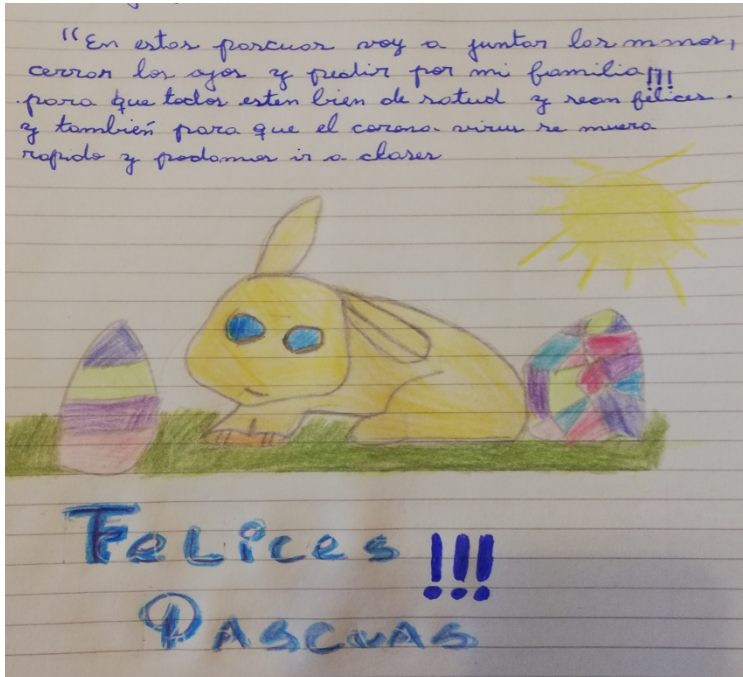 "En estas pascuas voy a juntar las manos,
cerrar los ojos y pedir por mi familia!!!
para que todos esten bien de salud y sean felices.
y también para que el corona-virus se muera
rapido y podamos ir a clases
FeLices!!!
PAScuAS